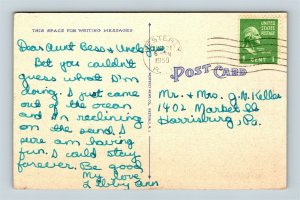 THIS SPACE FOR WRITING MESSAGES
Dear Aunt Bess & Uncle
Bet you couldn't
guess what I'm
doing. I just came
out of the ocean
and I'm reclining
on the sand. I
sure am having
fun. I could stay
forever. Be good
My love
Libby Ann
1950
UNITED STATES
POSTAGE
1 CENT 1
POST CARD
Mr. & Mrs. J. N. Keller
1402 Market St
Harrisburg, Pa.